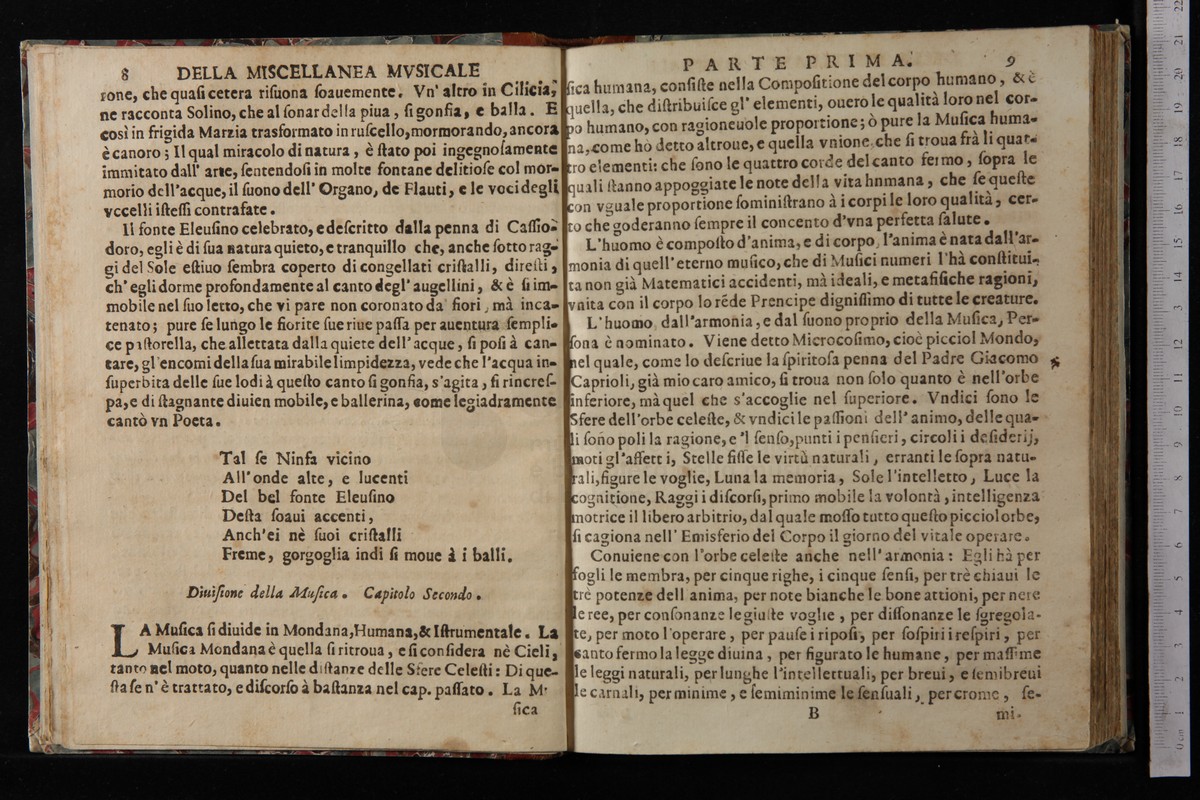 8 DELLA MISCELLANEA MVSICALE
rone, che quaſi cetera riſuona ſoauemente. Vn' altro in Cilicia,
ne racconta Solino, che al ſonar della piua, ſi gonfia, e balla. E
così in frigida Marzia trasformato in ruſcello, mormorando, ancora
è canoro; Il qual miracolo di natura, è ſtato poi ingegnoſamente
immitato dall' arte, ſentendoſi in molte fontane delitioſe col mor-
morio dell'acque, il ſuono dell' Organo, de Flauti, e le voci degli
vccelli iſteſſi contrafate.
Il fonte Eleuſino celebrato, e deſcritto dalla penna di Caſſio-
doro, egli è di ſua natura quieto, e tranquillo che, anche ſotto rag-
gi del Sole eſtiuo ſembra coperto di congellati criſtalli, direſti,
ch' egli dorme profondamente al canto degl' augellini, & è ſi im-
mobile nel ſuo letto, che vi pare non coronato da fiori, mà inca-
tenato; pure ſe lungo le fiorite ſue riue paſſa per auentura ſempli-
ce paſtorella, che allettata dalla quiete dell' acque, ſi poſi à can-
tare, gl'encomi della ſua mirabile limpidezza, vede che l'acqua in-
ſuperbita delle ſue lodi à queſto canto ſi gonfia, s'agita, ſi rincreſ-
pa, e di ſtagnante diuien mobile, e ballerina, come legiadramente
cantò vn Poeta.
Tal ſe Ninfa vicino
All'onde alte, e lucenti
Del bel fonte Eleuſino
Deſta ſoaui accenti,
Anch'ei nè ſuoi criſtalli
Freme, gorgoglia indi ſi moue à i balli.
Diuiſione della Muſica. Capitolo Secondo.
LA Muſica ſi diuide in Mondana, Humana, & Iſtrumentale. La
Muſica Mondana è quella ſi ritroua, e ſi conſidera nè Cieli,
tanto nel moto, quanto nelle diſtanze delle Sfere Celeſti: Di que-
ſta ſe n' è trattato, e diſcorſo à baſtanza nel cap. paſſato. La M
ſica
PARTE PRIMA. 9
ſica humana, conſiſte nella Compoſitione del corpo humano, & è
quella, che diſtribuiſce gl' elementi, ouero le qualità loro nel cor-
po humano, con ragioneuole proportione; ò pure la Muſica huma-
na, come hò detto altroue, e quella vnione che ſi troua frà li quat-
tro elementi: che ſono le quattro corde del canto fermo, ſopra le
quali ſtanno appoggiate le note della vita hnmana, che ſe queſte
con vguale proportione ſominiſtrano à i corpi le loro qualità, cer-
to che goderanno ſempre il concento d'vna perfetta ſalute.
L'huomo è compoſto d'anima, e di corpo, l'anima è nata dall'ar-
monia di quell' eterno muſico, che di Muſici numeri l'hà conſtitui-
ta non già Matematici accidenti, mà ideali, e metafiſiche ragioni,
vnita con il corpo lo réde Prencipe digniſſimo di tutte le creature.
L'huomo dall'armonia, e dal ſuono proprio della Muſica, Per-
ſona è nominato. Viene detto Microcoſimo, cioè picciol Mondo,
nel quale, come lo deſcriue la ſpiritoſa penna del Padre Giacomo
Caprioli, già mio caro amico, ſi troua non ſolo quanto è nell'orbe
inferiore, mà quel che s'accoglie nel ſuperiore. Vndici ſono le
Sfere dell'orbe celeſte, & vndici le paſſioni dell' animo, delle qua-
li ſono poli la ragione, e 'l ſenſo, punti i penſieri, circoli i deſiderij,
moti gl'affetti, Stelle fiſſe le virtù naturali, erranti le ſopra natu-
rali, figure le voglie, Luna la memoria, Sole l'intelletto, Luce la
cognitione, Raggi i diſcorſi, primo mobile la volontà, intelligenza
motrice il libero arbitrio, dal quale moſſo tutto queſto picciol orbe,
ſi cagiona nell' Emisferio del Corpo il giorno del vitale operare.
Conuiene con l'orbe celeſte anche nell' armonia: Egli hà per
fogli le membra, per cinque righe, i cinque ſenſi, per trè chiaui le
trè potenze dell anima, per note bianche le bone attioni, per nere
le ree, per conſonanze le giuſte voglie, per diſſonanze le ſgregola-
te, per moto l'operare, per pauſe i ripoſi, per ſoſpiri i reſpiri, per
canto fermo la legge diuina, per figurato le humane, per maſſime
le leggi naturali, per lunghe l'intellettuali, per breui, e ſemibreui
le carnali, per minime, e ſemiminime le ſenſuali, per crome, ſe-
B mi-